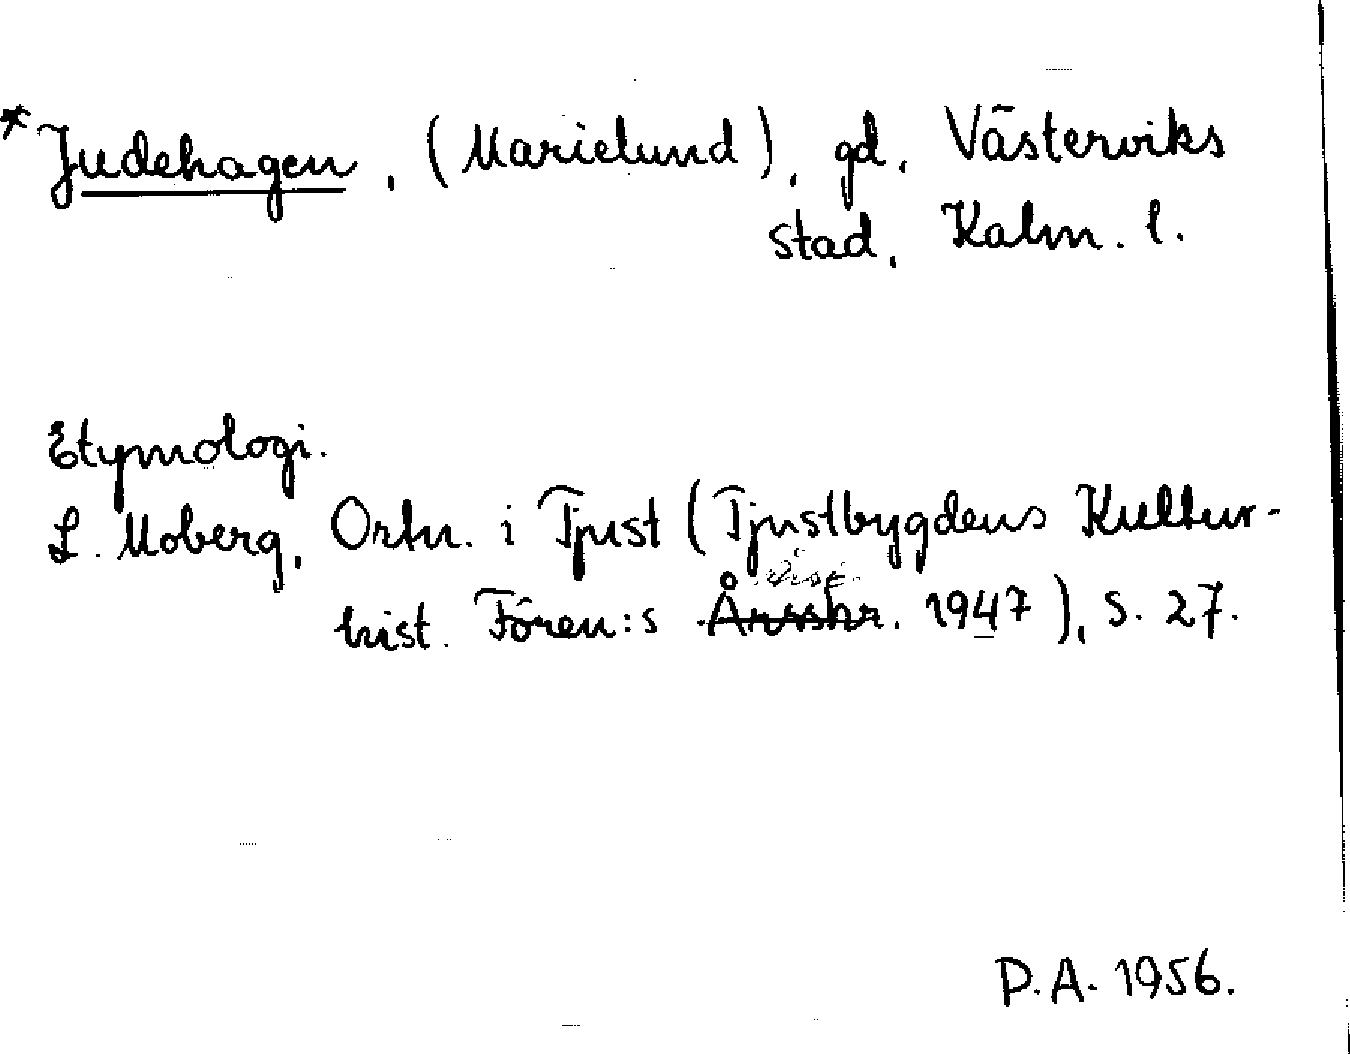 *Judehagen, (Marielund), gd, Västerviks
stad, Kalm. l.
Etymologi.
L. Moberg, Ortn. i Tjust (Tjustbygdens Kultur-
hist. Fören:s Årsskr. 1947), s. 27.
P.A. 1956.